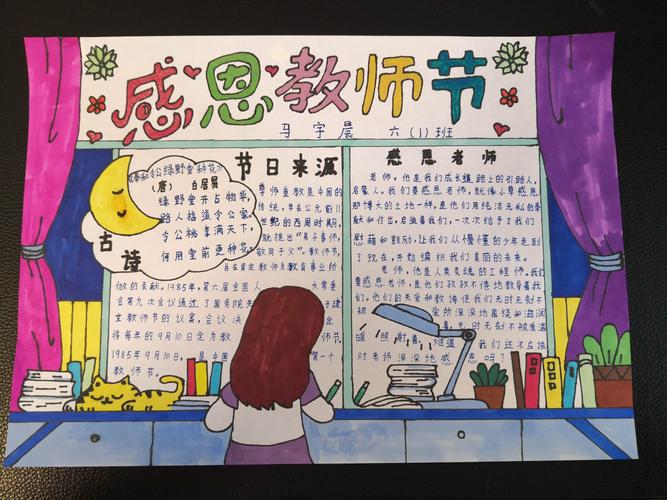 感恩教师节
马宇晨 六（1）班
奉和令公绿野堂种花》
（唐） 白居易
绿野堂开占物华，
路人指道令公家，
令公桃李满天下，
何用堂前更种花。
古诗
节日来源
尊师重教是中国的
传统，早在公元前11
世纪的西周时期，
就提出“弟子事师，
敬同于父”。教师节，
旨在肯定教师为教育事业所
做的贡献。1985年，第六届全国人 大常委
会第九次会议通过了国务院关 于建
立教师节的议案，会议决 定
将每年的9月10日定为教 师节，
1985年9月10日，是中国 第一个
教师节。
感恩老师
老师，他是我们成长道路上的引路人，
启蒙人。我们要感恩老师，就像小草感恩
那博大的土地一样，是他们用纯洁无私的奉
献和付出，启迪着我们，一次次给予了我们
慰藉和鼓励，让我们从懵懂的少年走到
了现在，开始编织我们美丽的未来。
老师，他是人类灵魂的工程师。我们
要感恩老师，是他们孜孜不倦地教导着我
们。他们的关爱和教诲使我们无时无刻不
被 爱所深深地围绕和滋润
着，无时无刻不被温
暖照射着，难道 我们还不应该
对老师深深地感恩吗？